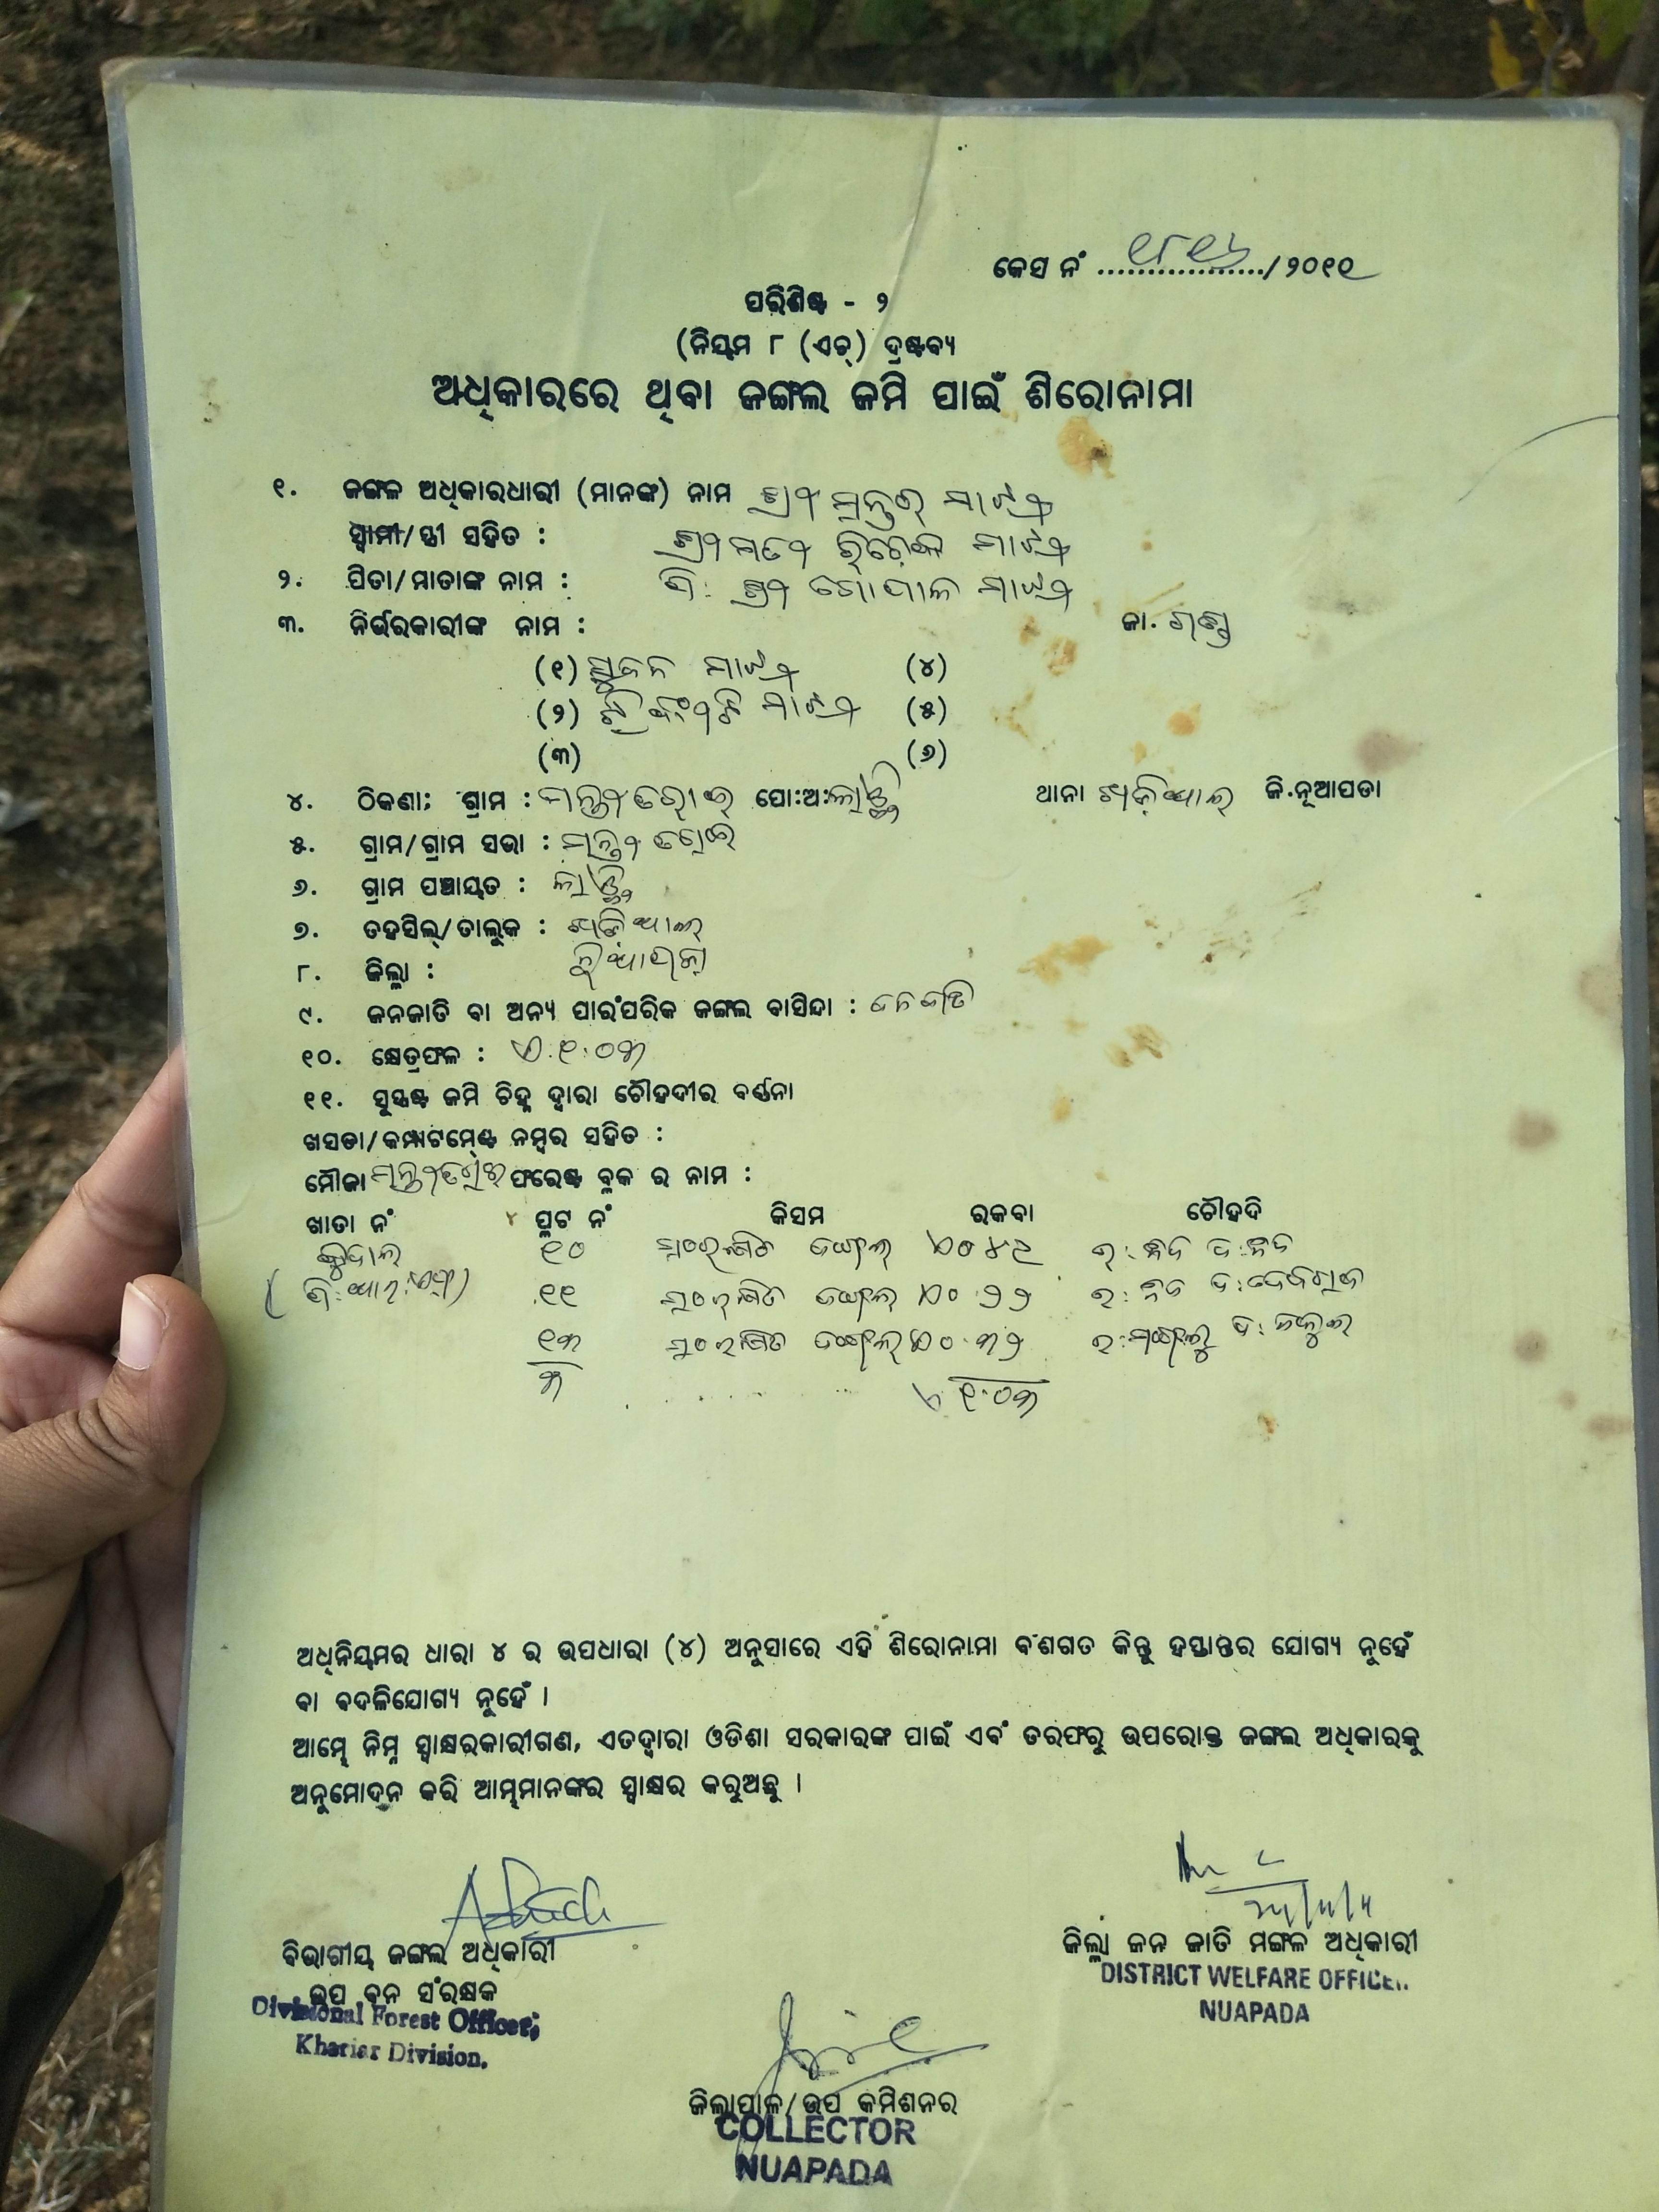 କେସ ନଂ ................/୨୦୧୧
ପରିଶିଷ୍ଟ - ୨
(ନିୟମ ୮ (ଏଚ୍) ଦ୍ରଷ୍ଟବ୍ୟ
ଅଧିକାରରେ ଥିବା ଜଙ୍ଗଲ ଜମି ପାଇଁ ଶିରୋନାମା
୧. ଜଙ୍ଗଲ ଅଧିକାରଧାରୀ (ମାନଙ୍କ) ନାମ ଶ୍ରୀ ମାଝୀ
ସ୍ୱାମୀ/ସ୍ତ୍ରୀ ସହିତ : ଶ୍ରୀମତୀ ମାଝୀ
୨. ପିତା/ମାତାଙ୍କ ନାମ : ପି: ଶ୍ରୀ ଗୋପାଳ ମାଝୀ
୩. ନିର୍ଭରକାରୀଙ୍କ ନାମ : ଜା. ଗଣ୍ଡ
(୧) ସୁଜନ ମାଝୀ (୪)
(୨) ମାଝୀ (୫)
(୩) (୬)
୪. ଠିକଣା: ଗ୍ରାମ : ପୋ:ଅ: ଥାନା ଖଡ଼ିଆଳ ଜି.ନୂଆପଡା
୫. ଗ୍ରାମ/ଗ୍ରାମ ସଭା :
୬. ଗ୍ରାମ ପଞ୍ଚାୟତ :
୭. ତହସିଲ୍/ତାଲୁକ : ଖଡ଼ିଆଳ
୮. ଜିଲ୍ଲା : ନୁଆପଡ଼ା
୯. ଜନଜାତି ବା ଅନ୍ୟ ପାରଂପରିକ ଜଙ୍ଗଲ ବାସିନ୍ଦା : ଜନଜାତି
୧୦. କ୍ଷେତ୍ରଫଳ : ଏ.୧.୦୩
୧୧. ସୁସ୍ପଷ୍ଟ ଜମି ଚିହ୍ନ ଦ୍ୱାରା ଚୌହଦୀର ବର୍ଣ୍ଣନା
ଖସଡା/କମ୍ପାଟମେଣ୍ଟ ନମ୍ବର ସହିତ :
ମୌଜା ଫରେଷ୍ଟ ବ୍ଲକ ର ନାମ :
ଖାତା ନଂ ପ୍ଲଟ ନଂ କିସମ ରକବା ଚୌହଦି
୧୦ ସଂରକ୍ଷିତ ଜଙ୍ଗଲ ଏ୦.୪୯
୧୧ ସଂରକ୍ଷିତ ଜଙ୍ଗଲ ଏ୦.୨୨
୧୩ ସଂରକ୍ଷିତ ଜଙ୍ଗଲ ଏ୦.୩୨
୩ ଏ ୧.୦୩
ଅଧିନିୟମର ଧାରା ୪ ର ଉପଧାରା (୪) ଅନୁସାରେ ଏହି ଶିରୋନାମା ବଂଶଗତ କିନ୍ତୁ ହସ୍ତାନ୍ତର ଯୋଗ୍ୟ ନୁହେଁ
ବା ବଦଳିଯୋଗ୍ୟ ନୁହେଁ ।
ଆମ୍ଭେ ନିମ୍ନ ସ୍ୱାକ୍ଷରକାରୀଗଣ, ଏତଦ୍ୱାରା ଓଡିଶା ସରକାରଙ୍କ ପାଇଁ ଏବଂ ତରଫରୁ ଉପରୋକ୍ତ ଜଙ୍ଗଲ ଅଧିକାରକୁ
ଅନୁମୋଦନ କରି ଆମ୍ଭମାନଙ୍କର ସ୍ୱାକ୍ଷର କରୁଅଛୁ ।
ବିଭାଗୀୟ ଜଙ୍ଗଲ ଅଧିକାରୀ
ଉପ ବନ ସଂରକ୍ଷକ
Divisional Forest Officer,
Khariar Division.
ଜିଲ୍ଲା ଜନ ଜାତି ମଙ୍ଗଳ ଅଧିକାରୀ
DISTRICT WELFARE OFFICER
NUAPADA
ଜିଲ୍ଲାପାଳ/ଉପ କମିଶନର
COLLECTOR
NUAPADA